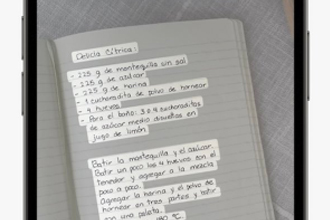 Delicia Cítrica:
- 225 g de mantequilla sin sal
- 225 g de azúcar
- 225 g de harina
- 1 cucharadita de polvo de hornear
- 4 huevos
- Para el baño: 3 o 4 cucharaditas
de azúcar medio disueltas en
jugo de limón
Batir la mantequilla y el azúcar.
Batir un poco los 4 huevos con el
tenedor y agregar a la mezcla
poco a poco.
Agregar la harina y el polvo de
hornear en tres partes y batir
con una paleta.
180 °C